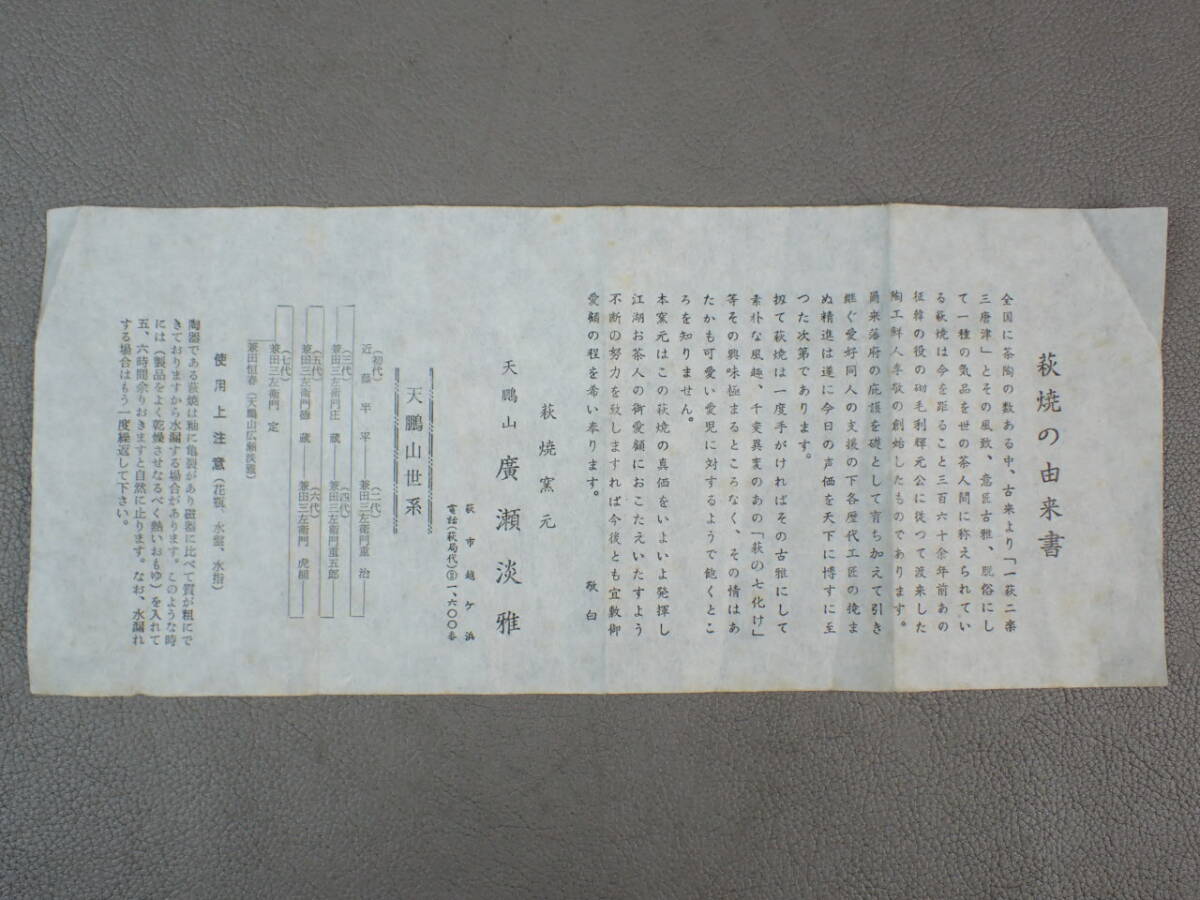 萩焼の由来書
全国に茶陶の数ある中、古来より「一萩二楽
三唐津」とその風致、意匠古雅、脱俗にし
て一種の気品を世の茶人間に称えられてい
る萩焼は今を距ること三百六十余年前あの
征韓の役の砌毛利輝元公に従つて渡来した
陶工鮮人李敬の創始したものであります。
爾来藩府の庇護を礎として育ち加えて引き
継ぐ愛好同人の支援の下各歴代工匠の撓ま
ぬ精進は遂に今日の声価を天下に博すに至
つた次第であります。
扨て萩焼は一度手がければその古雅にして
素朴な風趣、千変異変のあの「萩の七化け」
等その興味極まるところなく、その情はあ
たかも可愛い愛児に対するようで飽くとこ
ろを知りません。
本窯元はこの萩焼の真価をいよいよ発揮し
江湖お茶人の御愛顧におこたえいたすよう
不断の努力を致しますれば今後とも宜敷御
愛顧の程を希い奉ります。
敬白
萩焼窯元
天鵬山 廣瀬淡雅
萩市越ケ浜
電話(萩局代)②一、六〇〇番
天鵬山世系
(初代)近藤平平――(二代)兼田三左衛門重治
(三代)兼田三左衛門庄蔵――(四代)兼田三左衛門重五郎
(五代)兼田三左衛門徳蔵――(六代)兼田三左衛門虎槌
(七代)兼田三左衛門定
兼田恒春(天鵬山広瀬淡雅)
使用上注意(花瓶、水盤、水指)
陶器である萩焼は釉に亀裂があり磁器に比べて質が粗にで
きておりますから水漏する場合があります。このような時
には(製品をよく乾燥させなるべく熱いおもゆ)を入れて
五、六時間余りおきますと自然に止ります。なお、水漏れ
する場合はもう一度繰返して下さい。